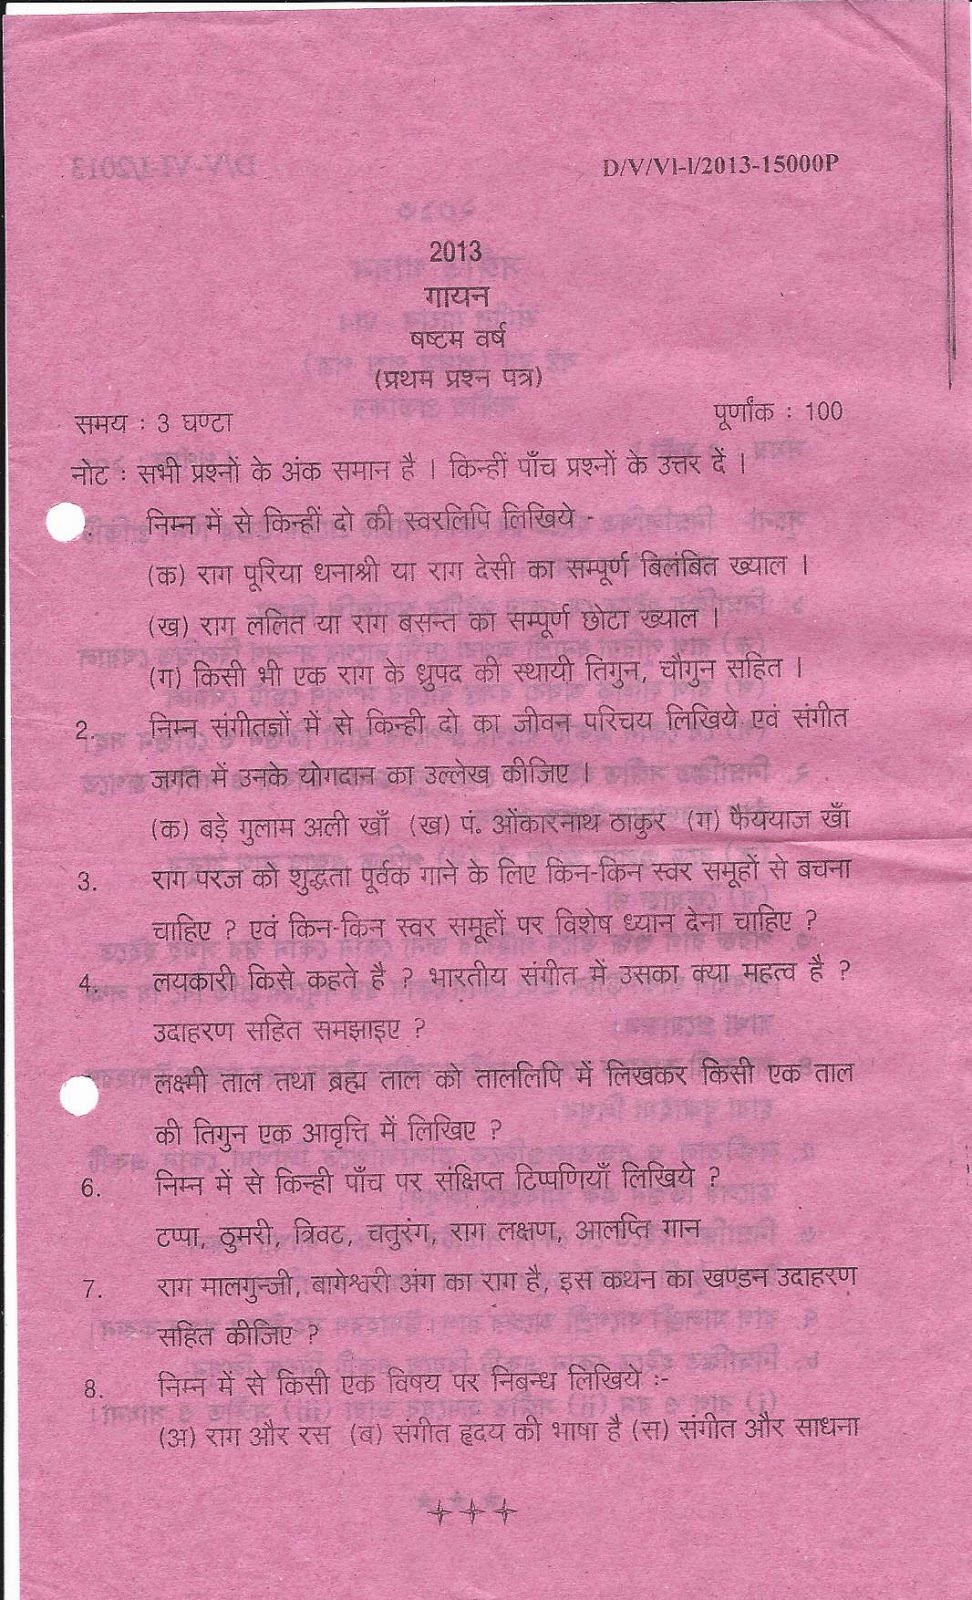 D/V/Vl-l/2013-15000P
2013
गायन
षष्टम वर्ष
(प्रथम प्रश्न पत्र)
समय : 3 घण्टा
पूर्णांक : 100
नोट : सभी प्रश्नों के अंक समान है । किन्हीं पाँच प्रश्नों के उत्तर दें ।
निम्न में से किन्हीं दो की स्वरलिपि लिखिये -
(क) राग पूरिया धनाश्री या राग देसी का सम्पूर्ण बिलंबित ख्याल ।
(ख) राग ललित या राग बसन्त का सम्पूर्ण छोटा ख्याल ।
(ग) किसी भी एक राग के ध्रुपद की स्थायी तिगुन, चौगुन सहित ।
2. निम्न संगीतज्ञों में से किन्ही दो का जीवन परिचय लिखिये एवं संगीत
जगत में उनके योगदान का उल्लेख कीजिए ।
(क) बड़े गुलाम अली खाँ (ख) पं. ओंकारनाथ ठाकुर (ग) फैययाज खाँ
3. राग परज को शुद्धता पूर्वक गाने के लिए किन-किन स्वर समूहों से बचना
चाहिए ? एवं किन-किन स्वर समूहों पर विशेष ध्यान देना चाहिए ?
4. लयकारी किसे कहते है ? भारतीय संगीत में उसका क्या महत्व है ?
उदाहरण सहित समझाइए ?
लक्ष्मी ताल तथा ब्रह्म ताल को ताललिपि में लिखकर किसी एक ताल
की तिगुन एक आवृत्ति में लिखिए ?
6. निम्न में से किन्ही पाँच पर संक्षिप्त टिप्पणियाँ लिखिये ?
टप्पा, ठुमरी, त्रिवट, चतुरंग, राग लक्षण, आलप्ति गान
7. राग मालगुन्जी, बागेश्वरी अंग का राग है, इस कथन का खण्डन उदाहरण
सहित कीजिए ?
8. निम्न में से किसी एक विषय पर निबन्ध लिखिये :-
(अ) राग और रस (ब) संगीत हृदय की भाषा है (स) संगीत और साधना